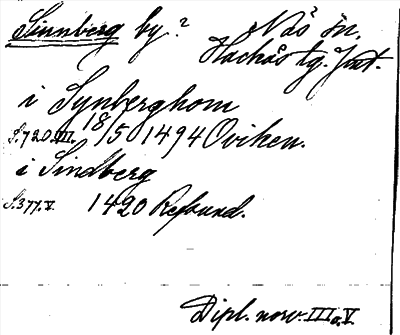 Sinnberg by? Näs sn.
Hackås tg. Jmt.
i Synberghom
S.720.III. 18/5 1494 Oviken.
i Sindberg
S.377.V. 1420 Refsund.
Dipl. norv. III o. V.